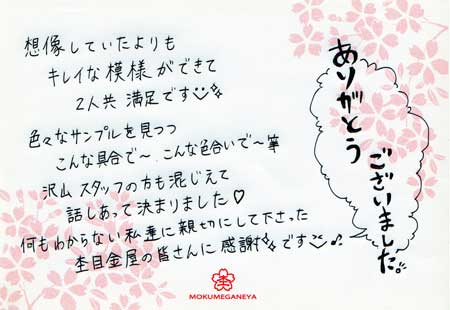 想像していたよりも
キレイな模様ができて
2人共 満足です
色々なサンプルを見つつ
こんな具合で〜、こんな色合いで〜等
沢山 スタッフの方も混じえて
話しあって決まりました♡
何もわからない私達に親切にして下さった
杢目金屋の皆さんに 感謝です♪
ありがとう
ございました。
MOKUMEGANEYA